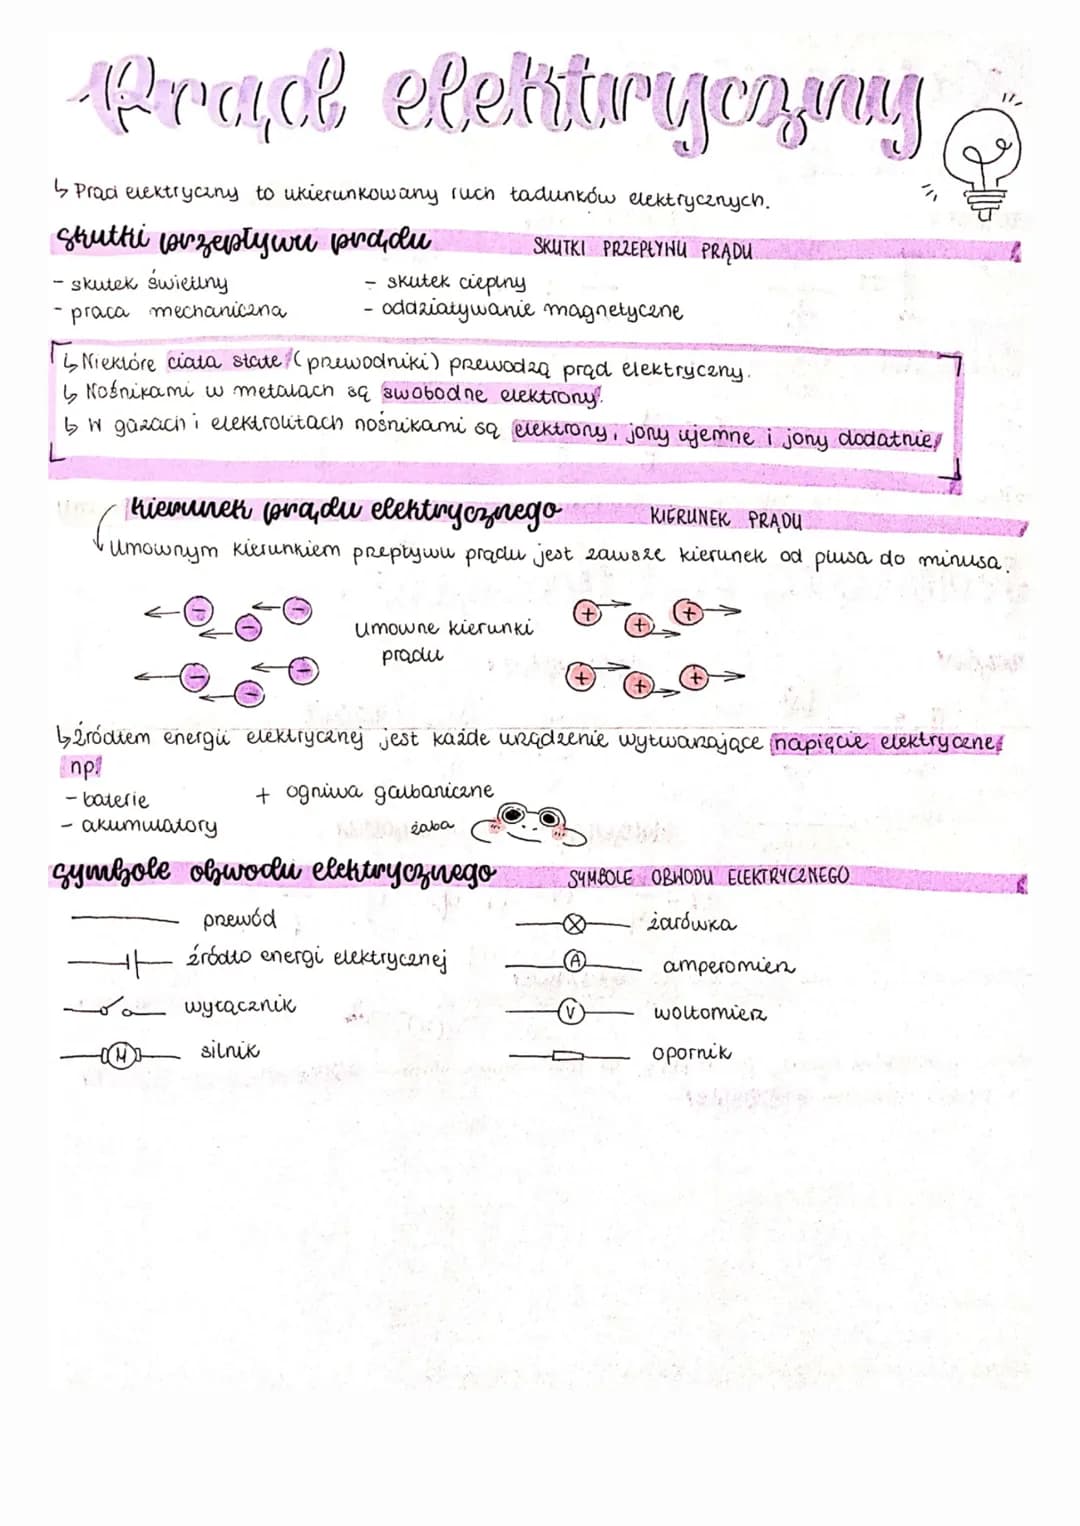 Prąd elektryczny
↳ Prąd elektryczny to ukierunkowany ruch ładunków elektrycznych.
skutki przepływu prądu SKUTKI PRZEPŁYWU PRĄDU
- skutek świetlny - skutek cieplny
- praca mechaniczna - oddziaływanie magnetyczne
↳ Niektóre ciała stałe (przewodniki) przewodzą prąd elektryczny.
↳ Nośnikami w metalach są swobodne elektrony.
↳ W gazach i elektrolitach nośnikami są elektrony, jony ujemne i jony dodatnie
kierunek prądu elektrycznego KIERUNEK PRĄDU
Umownym kierunkiem przepływu prądu jest zawsze kierunek od plusa do minusa.
Umowne kierunki
prądu
↳ źródłem energii elektrycznej jest każde urządzenie wytwarzające napięcie elektryczne
np.
- baterie + ogniwa galbaniczne
- akumulatory żaba
symbole obwodu elektrycznego SYMBOLE OBWODU ELEKTRYCZNEGO
przewód żarówka
źródło energi elektrycznej A amperomierz
wyłącznik V woltomierz
M silnik opornik